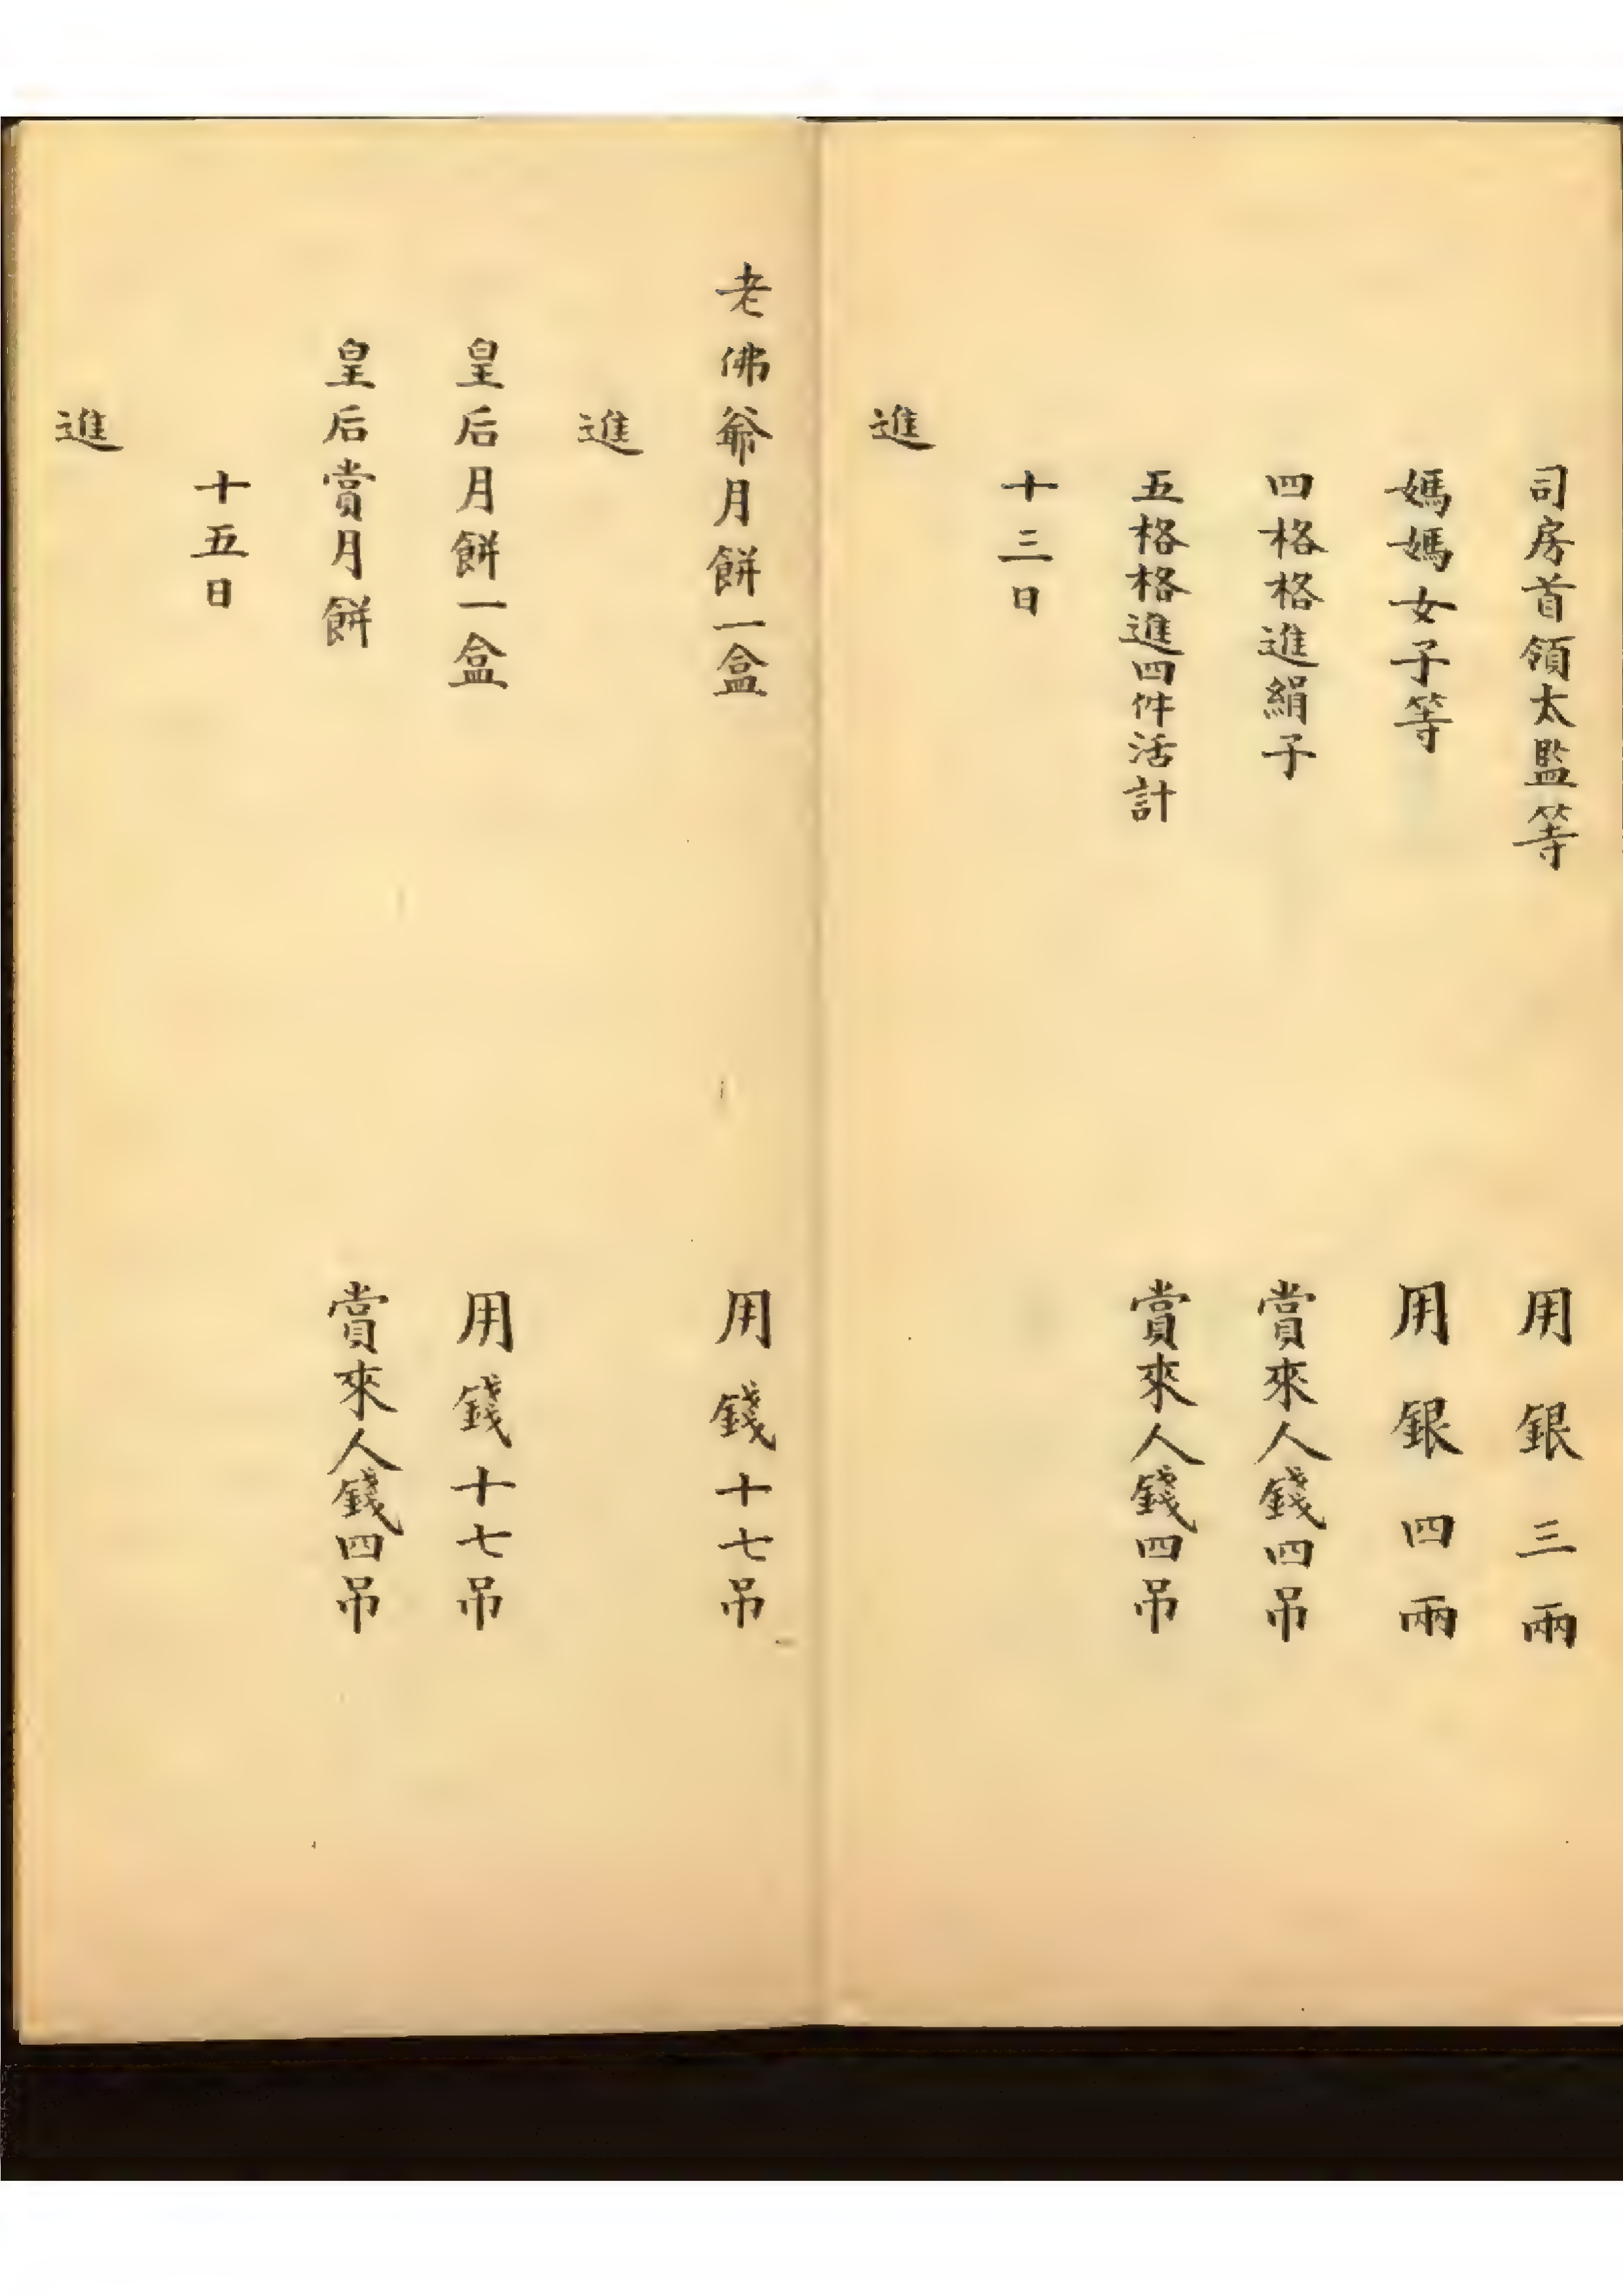 司房首領太監等　用銀三兩
媽媽女子等　用銀四兩
四格格進絹子　賞來人錢四吊
五格格進四件活計　賞來人錢四吊
十三日
進
老佛爺月餅一盒　用錢十七吊
進
皇后月餅一盒　用錢十七吊
皇后賞月餅　賞來人錢四吊
十五日
進